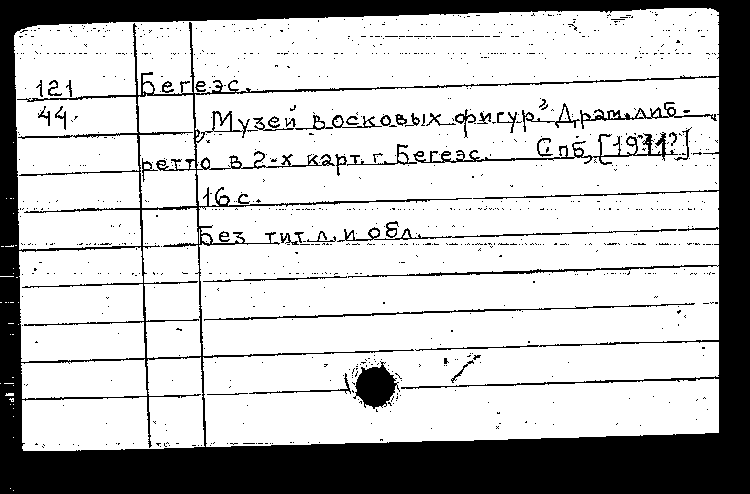 121 Бегеэс.
44.
„Музей восковых фигур.” Драм. либ-
ретто в 2-х карт. г. Бегеэс. Спб, [1911?]
16 с.
Без тит. л. и обл.